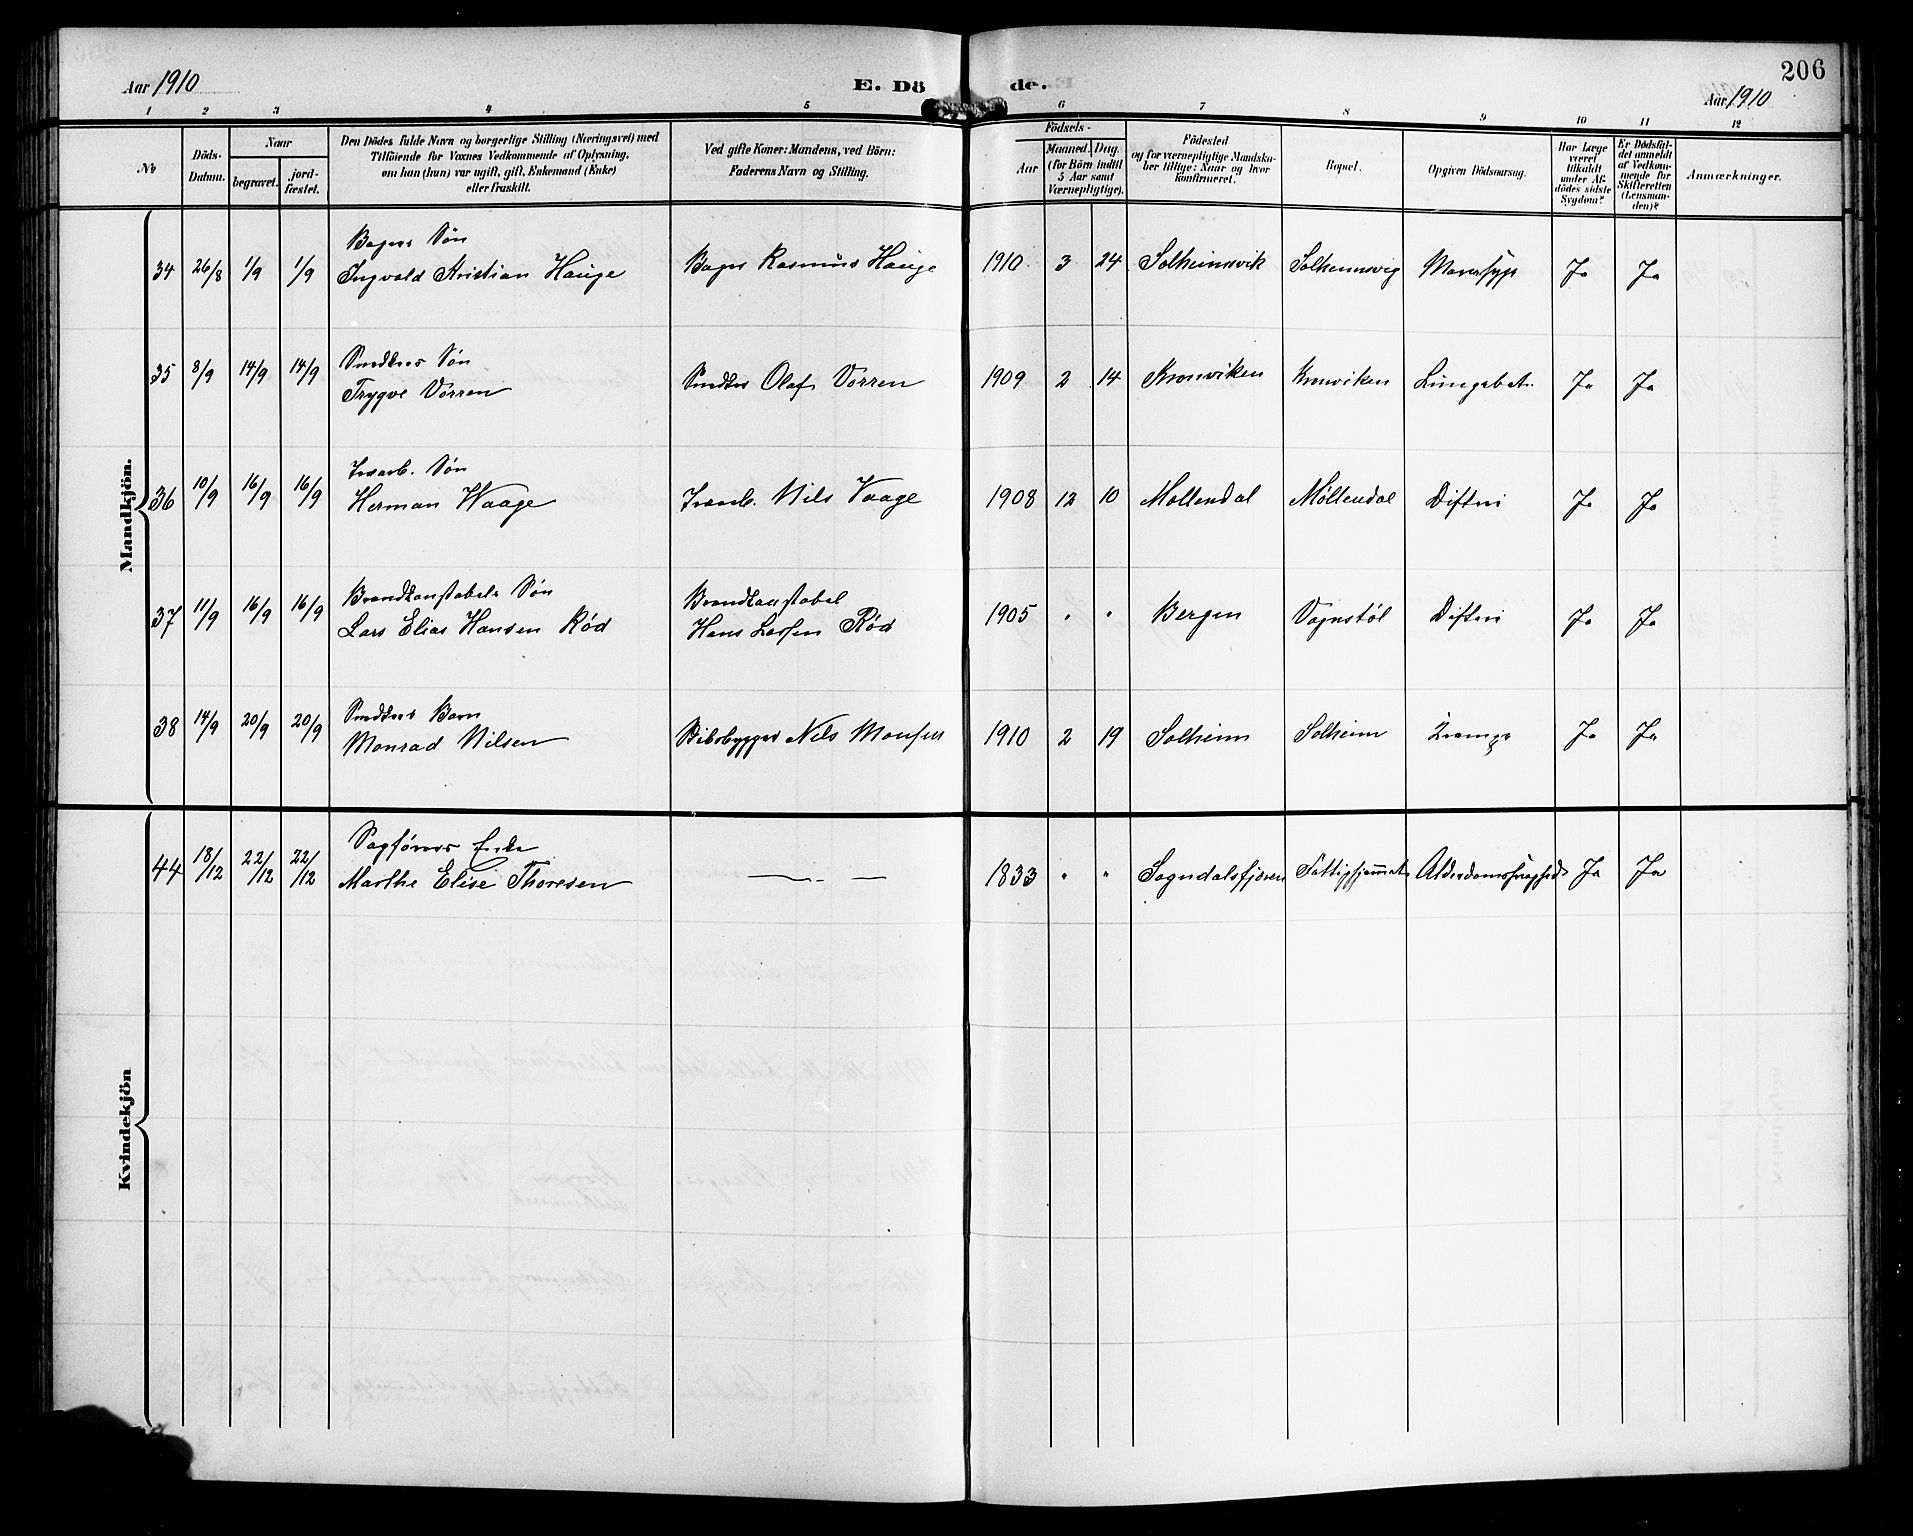 206
Aar 1910
E. Dö de.
Aar 1910
1 2 3 4 5 6 7 8 9 10 11 12
No
Döds-Datum.
Naar
begravet.
jord-fæstet.
Den Dödes fulde Navn og borgerlige Stilling (Næringsvei) med
Tilföiende for Voxnes Vedkommende af Oplysning,
om han (hun) var ugift, gift, Enkemand (Enke)
eller fraskilt.
Ved gifte Koner: Mandens, ved Börn:
Faderens Navn og Stilling.
Födsels-
Aar
Maaned. Dag.
(for Börn indtil
5 Aar samt
Værnepligtige).
Födested
og for værnepligtige Mandska-
ber tillige: Naar og hvor
konfirmeret.
Bopæl.
Opgiven Dödsaarsag.
Har Læge
været
tilkaldt
under Af-
dödes sidste
Sygdom?
Er Dödsfal-
det anmeldt
af Vedkom-
mende for
Skifteretten
(Lensman-
den)?
Anmærkninger.
Mandkjön.
Bagers Søn
34 26/8 1/9 1/9 Ingvald Kristian Hauge Bager Rasmus Hauge 1910 3 24 Solheimsvik Solheimsvig Mavesyge Ja Ja
Snedkers Søn
35 8/9 14/9 14/9 Trygve Vorren Snedker Olaf Vorren 1909 2 14 Kronviken Kronviken Lungebet. Ja Ja
Søn
36 10/9 16/9 16/9 Herman Waage Nils Vaage 1908 12 10 Møllendal Møllendal Difteri Ja Ja
Brandkonstabels Søn Brandkonstabel
37 11/9 16/9 16/9 Lars Elias Hansen Rød Hans Larsen Rød 1905 " " Bergen Vognstöl Difteri Ja Ja
Snedkers Barn
38 14/9 20/9 20/9 Monrad Nilsen Skibsbygger Nils Monsen 1910 2 19 Solheim Solheim Krampe Ja Ja
Kvindekjön
Sagførers Enke
44 18/12 22/12 22/12 Marthe Elise Thoresen — — 1833 " " Sogndalsfjøren Fattighjemmet Alderdomssvaghed Ja Ja